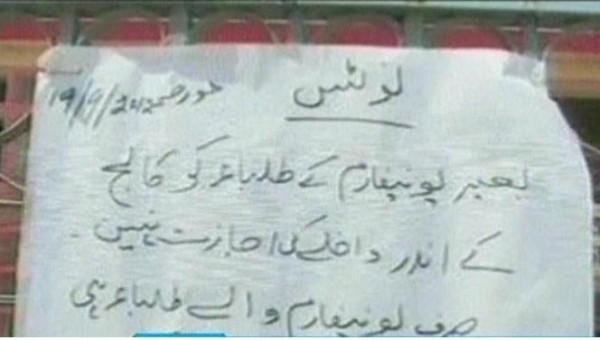 نوٹس
مورخہ 19/9/2012
بغیر یونیفارم کے طلباء کو کالج
کے اندر داخلے کی اجازت نہیں ۔
صرف یونیفارم والے طلباء ہی